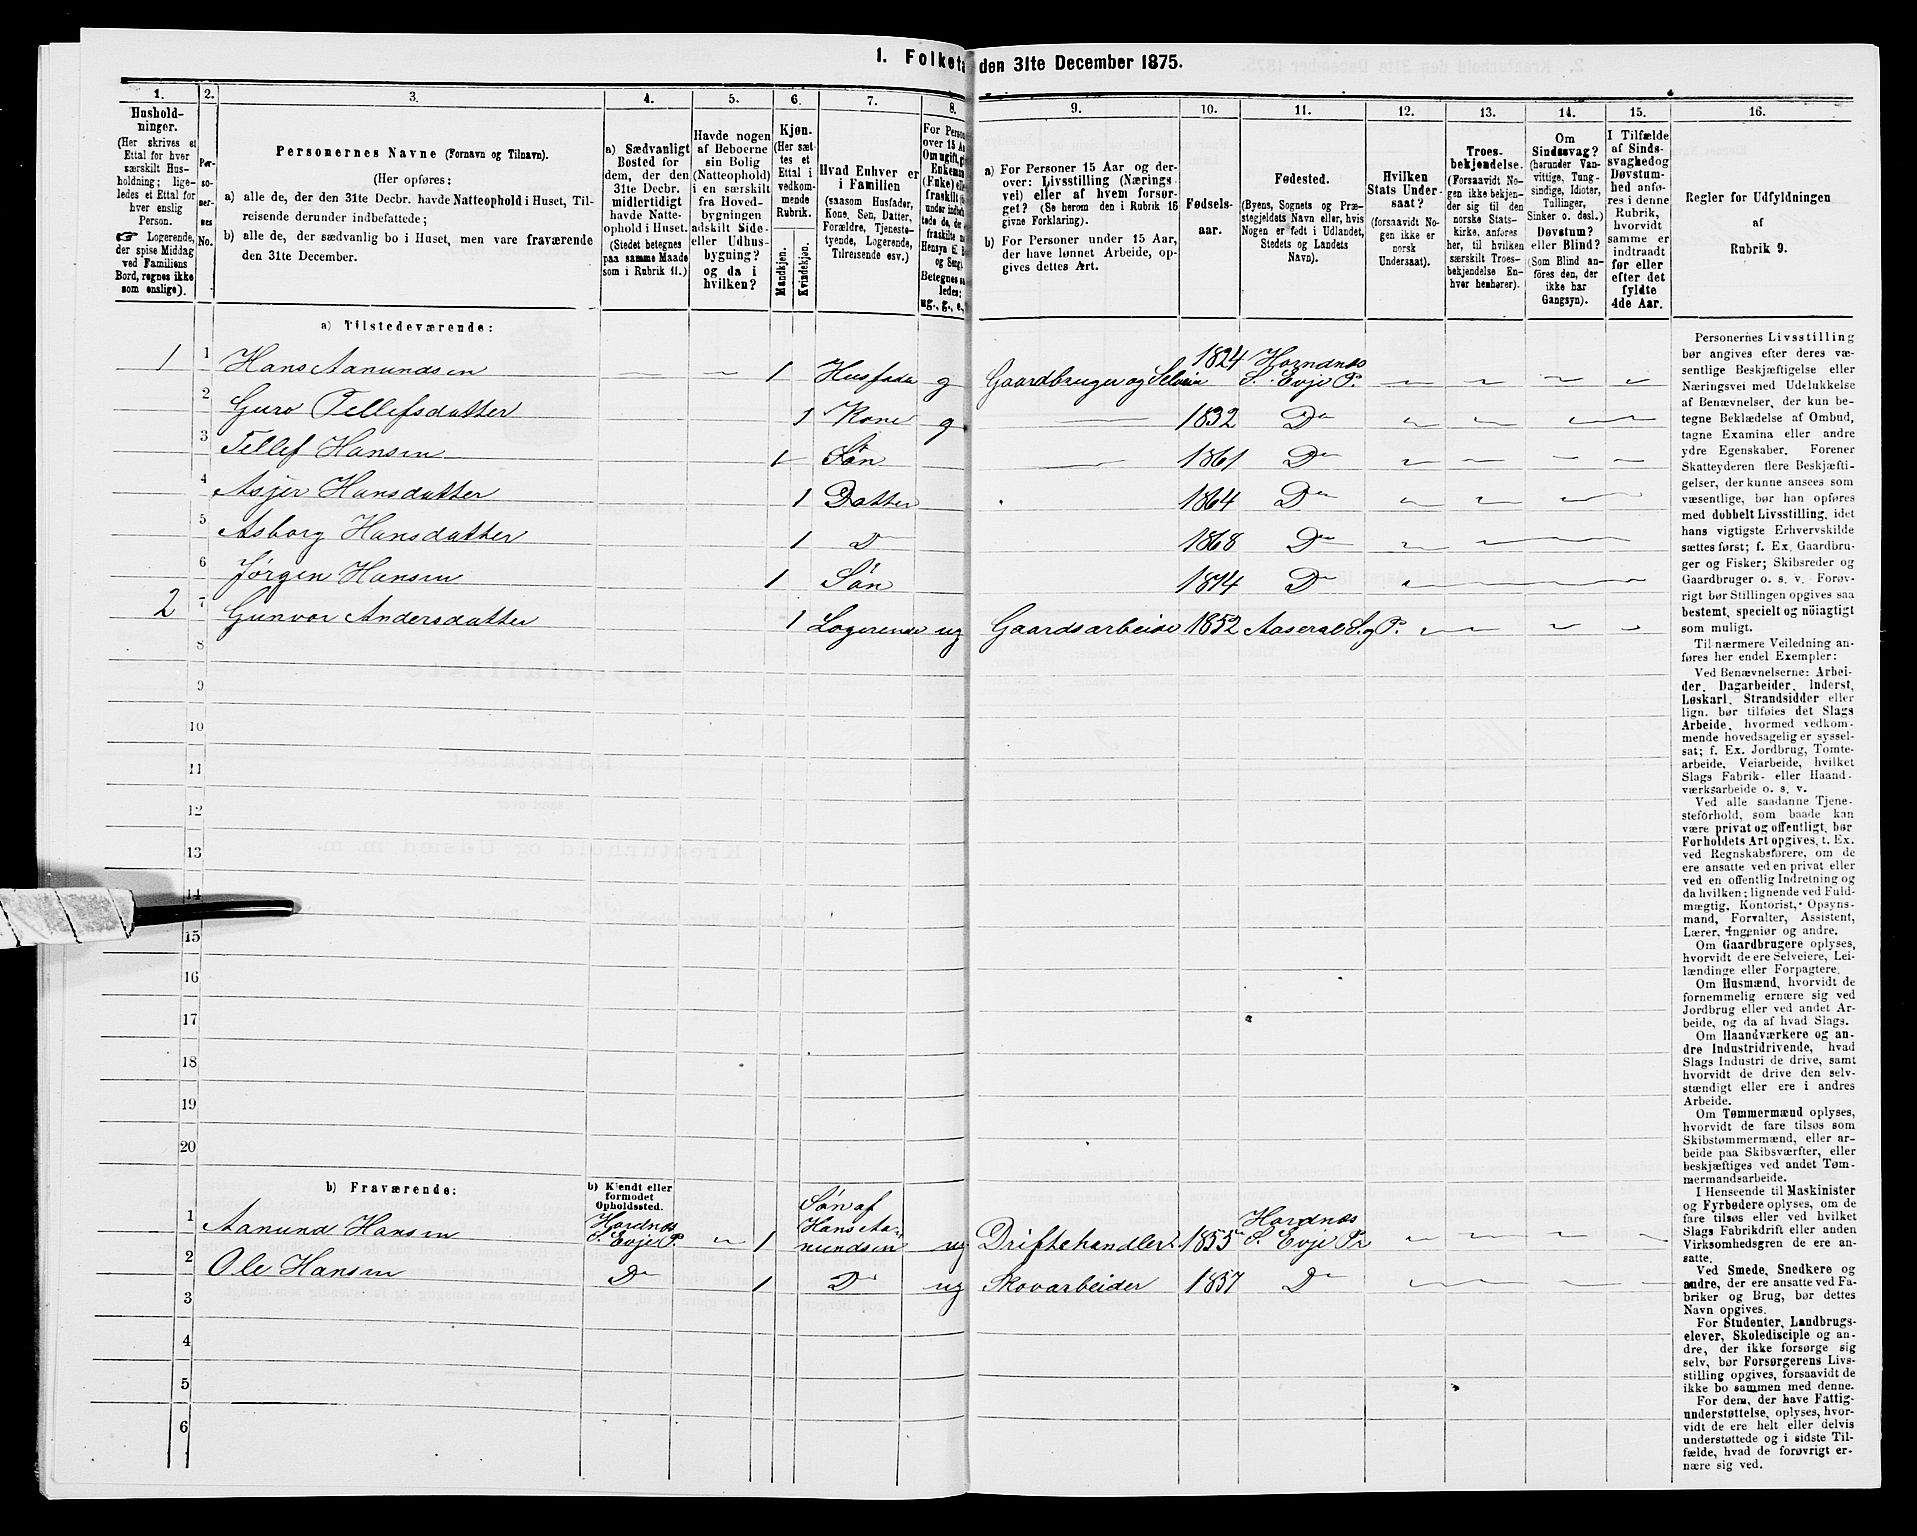 1. Folketa den 31te December 1875.
1. 2. 3. 4. 5. 6. 7. 8. 9. 10. 11. 12. 13. 14. 15. 16.
Hushold-
ninger.
(Her skrives et
Ettal for hver
særskilt Hus-
holdning; lige-
ledes et Ettal for
hver enslig
Person.
☞ Logerende,
der spise Middag
ved Familiens
Bord, regnes ikke
som enslige).
Per-
so-
ner-
nes
No.
Personernes Navne (Fornavn og Tilnavn).
(Her opføres:
a) alle de, der den 31te Decbr. havde Natteophold i Huset, Til-
reisende derunder indbefattede;
b) alle de, der sædvanlig bo i Huset, men vare fraværende
den 31te December.
a) Sædvanligt
Bosted for
dem, der den
31te Decbr.
midlertidigt
havde Natte-
ophold i Huset.
(Stedet betegnes
paa samme Maade
som i Rubrik 11.)
Havde nogen
af Beboerne
sin Bolig
(Natteophold)
i en særskilt
fra Hoved-
bygningen
adskilt Side-
eller Udhus-
bygning?
og da i
hvilken?
Kjøn.
(Her sæt-
tes et
Ettal i
vedkom-
mende
Rubrik.
Mandkjøn.
Kvindekjøn.
Hvad Enhver er
i Familien
(saasom Husfader,
Kone, Søn, Datter,
Forældre, Tjeneste-
tyende, Logerende,
Tilreisende osv.)
For Person
over 15 Aa
Om ugift, gi
Enkeman
(Enke) elle
fraskilt
Betegnes sa
ledes:
ug., g., e.,
a) For Personer 15 Aar og der-
over: Livsstilling (Nærings-
vei) eller af hvem forsør-
get? (Se herom den i Rubrik 16
givne Forklaring).
b) For Personer under 15 Aar,
der have lønnet Arbeide, op-
gives dettes Art.
Fødsels-
aar.
Fødested.
(Byens, Sognets og Præ-
stegjeldets Navn eller, hvis
Nogen er født i Udlandet,
Stedets og Landets
Navn).
Hvilken
Stats Under-
saat?
(forsaavidt No-
gen ikke er
norsk
Undersaat).
Troes-
bekjendelse.
(Forsaavidt No-
gen ikke bekjen-
der sig til den
norske Stats-
kirke, anføres
her, til hvilken
særskilt Troes-
bekjendelse En-
hver henhører).
Om
Sindssvag?
(herunder Van-
vittige, Tung-
sindige, Idioter,
Tullinger,
Sinker o. desl.)
Døvstum?
eller Blind?
(Som Blind an-
føres den, der
ikke har
Gangsyn).
I Tilfælde
af Sinds-
svaghed og
Døvstum-
hed anfø-
res i denne
Rubrik,
hvorvidt
samme er
indtraadt
før eller
efter det
fyldte
4de Aar.
Regler for Udfyldningen
af
Rubrik 9.
a) Tilstedeværende:
1 1 Hans Aanundsen 1 Husfada g Gaardbruger og Selveier 1824 Horndnæs S. Evje P.
2 Guro Tellefsdatter 1 Kone g 1832 Do
3 Tellef Hansen 1 Søn 1861 Do
4 Asjer Hansdatter 1 Datter 1864 Do
5 Asborg Hansdatter 1 D 1868 Do
6 Jørgen Hansen 1 Søn 1874 Do
2 7 Gunvor Andersdatter 1 Logerende ug Gaardsarbeide 1852 Aaseral S. g P.
8
9
10
11
12
13
14
15
16
17
18
19
20
b) Fraværende:
b) Kjendt eller
formodet
Opholdssted.
1 Aanund Hansen Hordnæs S. Evje P. 1 Søn af Hans Aanundsen ug Driftehandler 1855 Hordnæs S. Evje Pr
2 Ole Hansen Do 1 Do ug Skovarbeider 1857 Do
3
4
5
6
Personernes Livsstilling
bør angives efter deres væ-
sentlige Beskjæftigelse eller
Næringsvei med Udelukkelse
af Benævnelser, der kun be-
tegne Beklædelse af Ombud,
tagne Examina eller andre
ydre Egenskaber. Forener
Skatteyderen flere Beskjæfti-
gelser, der kunne ansees som
væsentlige, bør han opføres
med dobbelt Livsstilling, idet
hans vigtigste Erhvervskilde
sættes først; f. Ex. Gaardbru-
ger og Fisker; Skibsreder og
Gaardbruger o. s. v. Forøv-
rigt bør Stillingen opgives saa
bestemt, specielt og nöiagtigt
som muligt.
Til nærmere Veiledning an-
føres her endel Exempler:
Ved Benævnelserne: Arbei-
der, Dagarbeider, Inderst,
Løskarl, Strandsidder eller
lign. bør tilføies det Slags
Arbeide, hvormed vedkom-
mende hovedsagelig er syssel-
sat; f. Ex. Jordbrug, Tomte-
arbeide, Veiarbeide, hvilket
Slags Fabrik- eller Haand-
værksarbeide o. s. v.
Ved alle saadanne Tjene-
steforhold, som baade kan
være privat og offentligt, bør
Forholdets Art opgives, t. Ex.
ved Regnskabsførere, om de
ere ansatte ved en privat eller
ved en offentlig Indretning og
da hvilken; lignende ved Fuld-
mægtig, Kontorist, Opsyns-
mand, Forvalter, Assistent,
Lærer, Ingeniør og andre.
Om Gaardbrugere oplyses,
hvorvidt de ere Selveiere, Lei-
lændinge eller Forpagtere.
Om Husmænd, hvorvidt de
fornemmelig ernære sig ved
Jordbrug eller ved andet Ar-
beide, og da af hvad Slags.
Om Haandværkere og an-
dre Industridrivende, hvad
Slags Industri de drive, samt
hvorvidt de drive den selv-
stændigt eller ere i andres
Arbeide.
Om Tømmermænd oplyses,
hvorvidt de fare tilsøs som
Skibstømmermænd, eller ar-
beide paa Skibsværfter, eller
beskjæftiges ved andet Tøm-
mermandsarbeide.
I Henseende til Maskinister
og Fyrbødere oplyses, om de
fare tilsøs eller ved hvilket
Slags Fabrikdrift eller anden
Virksomhedsgren de ere an-
satte.
Ved Smede, Snedkere og
andre, der ere ansatte ved Fa-
briker og Brug, bør dettes
Navn opgives.
For Studenter, Landbrugs-
elever, Skoledisciple og an-
dre, der ikke forsørge sig
selv, bør Forsørgerens Livs-
stilling opgives, forsaavidt de
ikke bo sammen med denne.
For dem, der have Fattig-
understøttelse, oplyses, hvor-
vidt de ere helt eller delvis
understøttede og i sidste Til-
fælde, hvad de forøvrigt er-
nære sig ved.